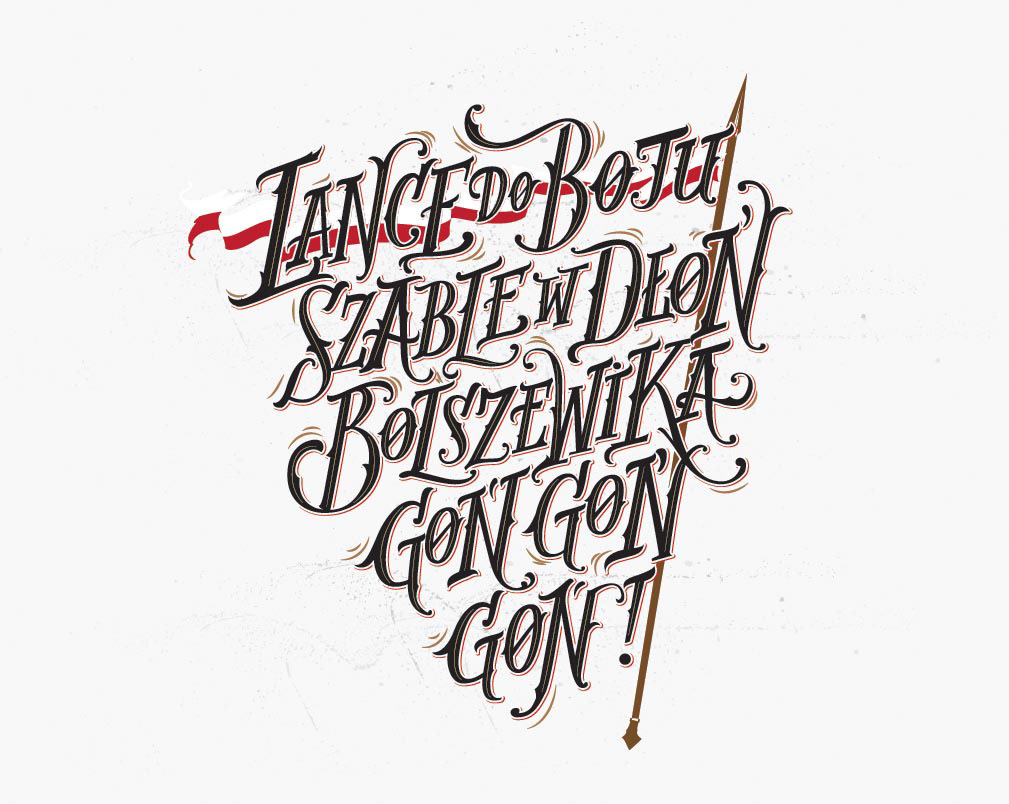 LANCE DO BOJU
SZABLE W DŁOŃ
BOLSZEWIKA
GOŃ GOŃ
GOŃ!